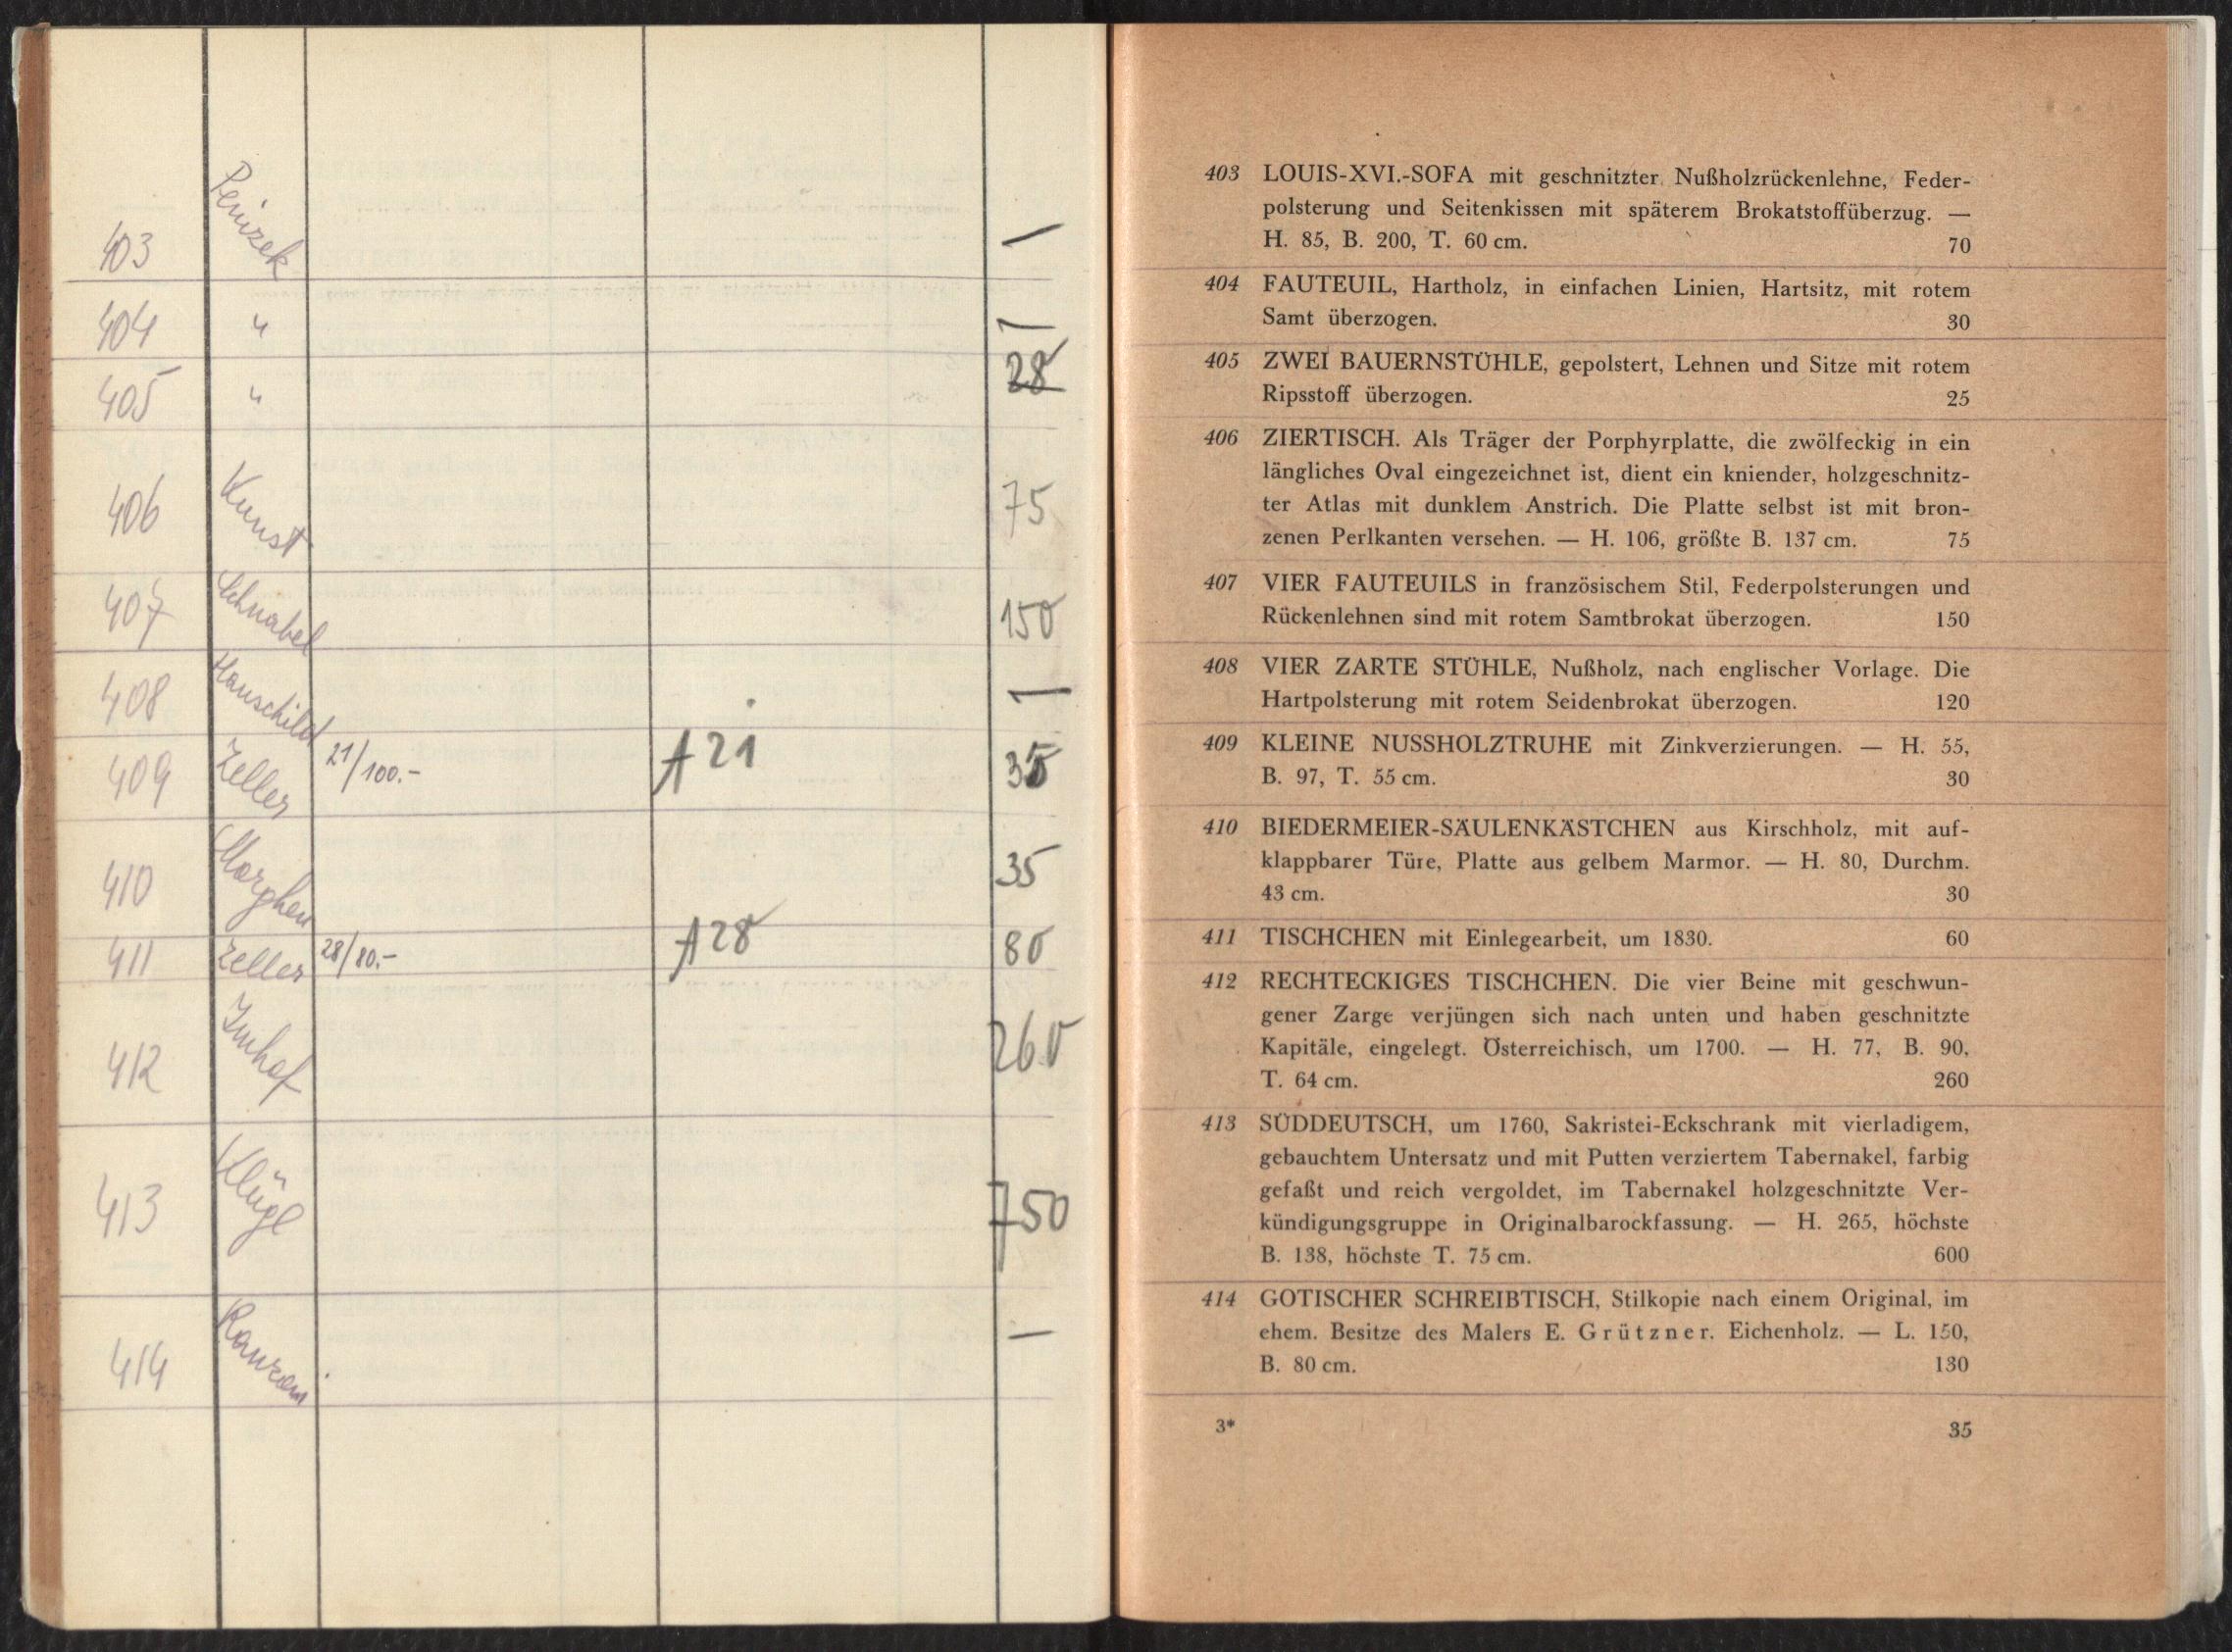 403 Penizek —
404 " —
405 " 28
406 Kunst 75
407 Schnabel 150
408 Hauschild —
409 Zeller 21/100.- A 21 35
410 35
411 Zeller 28/80.- A 28 80
412 Imhof 260
413 Klügl 750
414 —
403 LOUIS-XVI.-SOFA mit geschnitzter Nußholzrückenlehne, Feder-
polsterung und Seitenkissen mit späterem Brokatstoffüberzug. —
H. 85, B. 200, T. 60 cm. 70
404 FAUTEUIL, Hartholz, in einfachen Linien, Hartsitz, mit rotem
Samt überzogen. 30
405 ZWEI BAUERNSTÜHLE, gepolstert, Lehnen und Sitze mit rotem
Ripsstoff überzogen. 25
406 ZIERTISCH. Als Träger der Porphyrplatte, die zwölfeckig in ein
längliches Oval eingezeichnet ist, dient ein kniender, holzgeschnitz-
ter Atlas mit dunklem Anstrich. Die Platte selbst ist mit bron-
zenen Perlkanten versehen. — H. 106, größte B. 137 cm. 75
407 VIER FAUTEUILS in französischem Stil, Federpolsterungen und
Rückenlehnen sind mit rotem Samtbrokat überzogen. 150
408 VIER ZARTE STÜHLE, Nußholz, nach englischer Vorlage. Die
Hartpolsterung mit rotem Seidenbrokat überzogen. 120
409 KLEINE NUSSHOLZTRUHE mit Zinkverzierungen. — H. 55,
B. 97, T. 55 cm. 30
410 BIEDERMEIER-SÄULENKÄSTCHEN aus Kirschholz, mit auf-
klappbarer Türe, Platte aus gelbem Marmor. — H. 80, Durchm.
43 cm. 30
411 TISCHCHEN mit Einlegearbeit, um 1830. 60
412 RECHTECKIGES TISCHCHEN. Die vier Beine mit geschwun-
gener Zarge verjüngen sich nach unten und haben geschnitzte
Kapitäle, eingelegt. Österreichisch, um 1700. — H. 77, B. 90,
T. 64 cm. 260
413 SÜDDEUTSCH, um 1760, Sakristei-Eckschrank mit vierladigem,
gebauchtem Untersatz und mit Putten verziertem Tabernakel, farbig
gefaßt und reich vergoldet, im Tabernakel holzgeschnitzte Ver-
kündigungsgruppe in Originalbarockfassung. — H. 265, höchste
B. 138, höchste T. 75 cm. 600
414 GOTISCHER SCHREIBTISCH, Stilkopie nach einem Original, im
ehem. Besitze des Malers E. Grützner. Eichenholz. — L. 150,
B. 80 cm. 130
3* 35